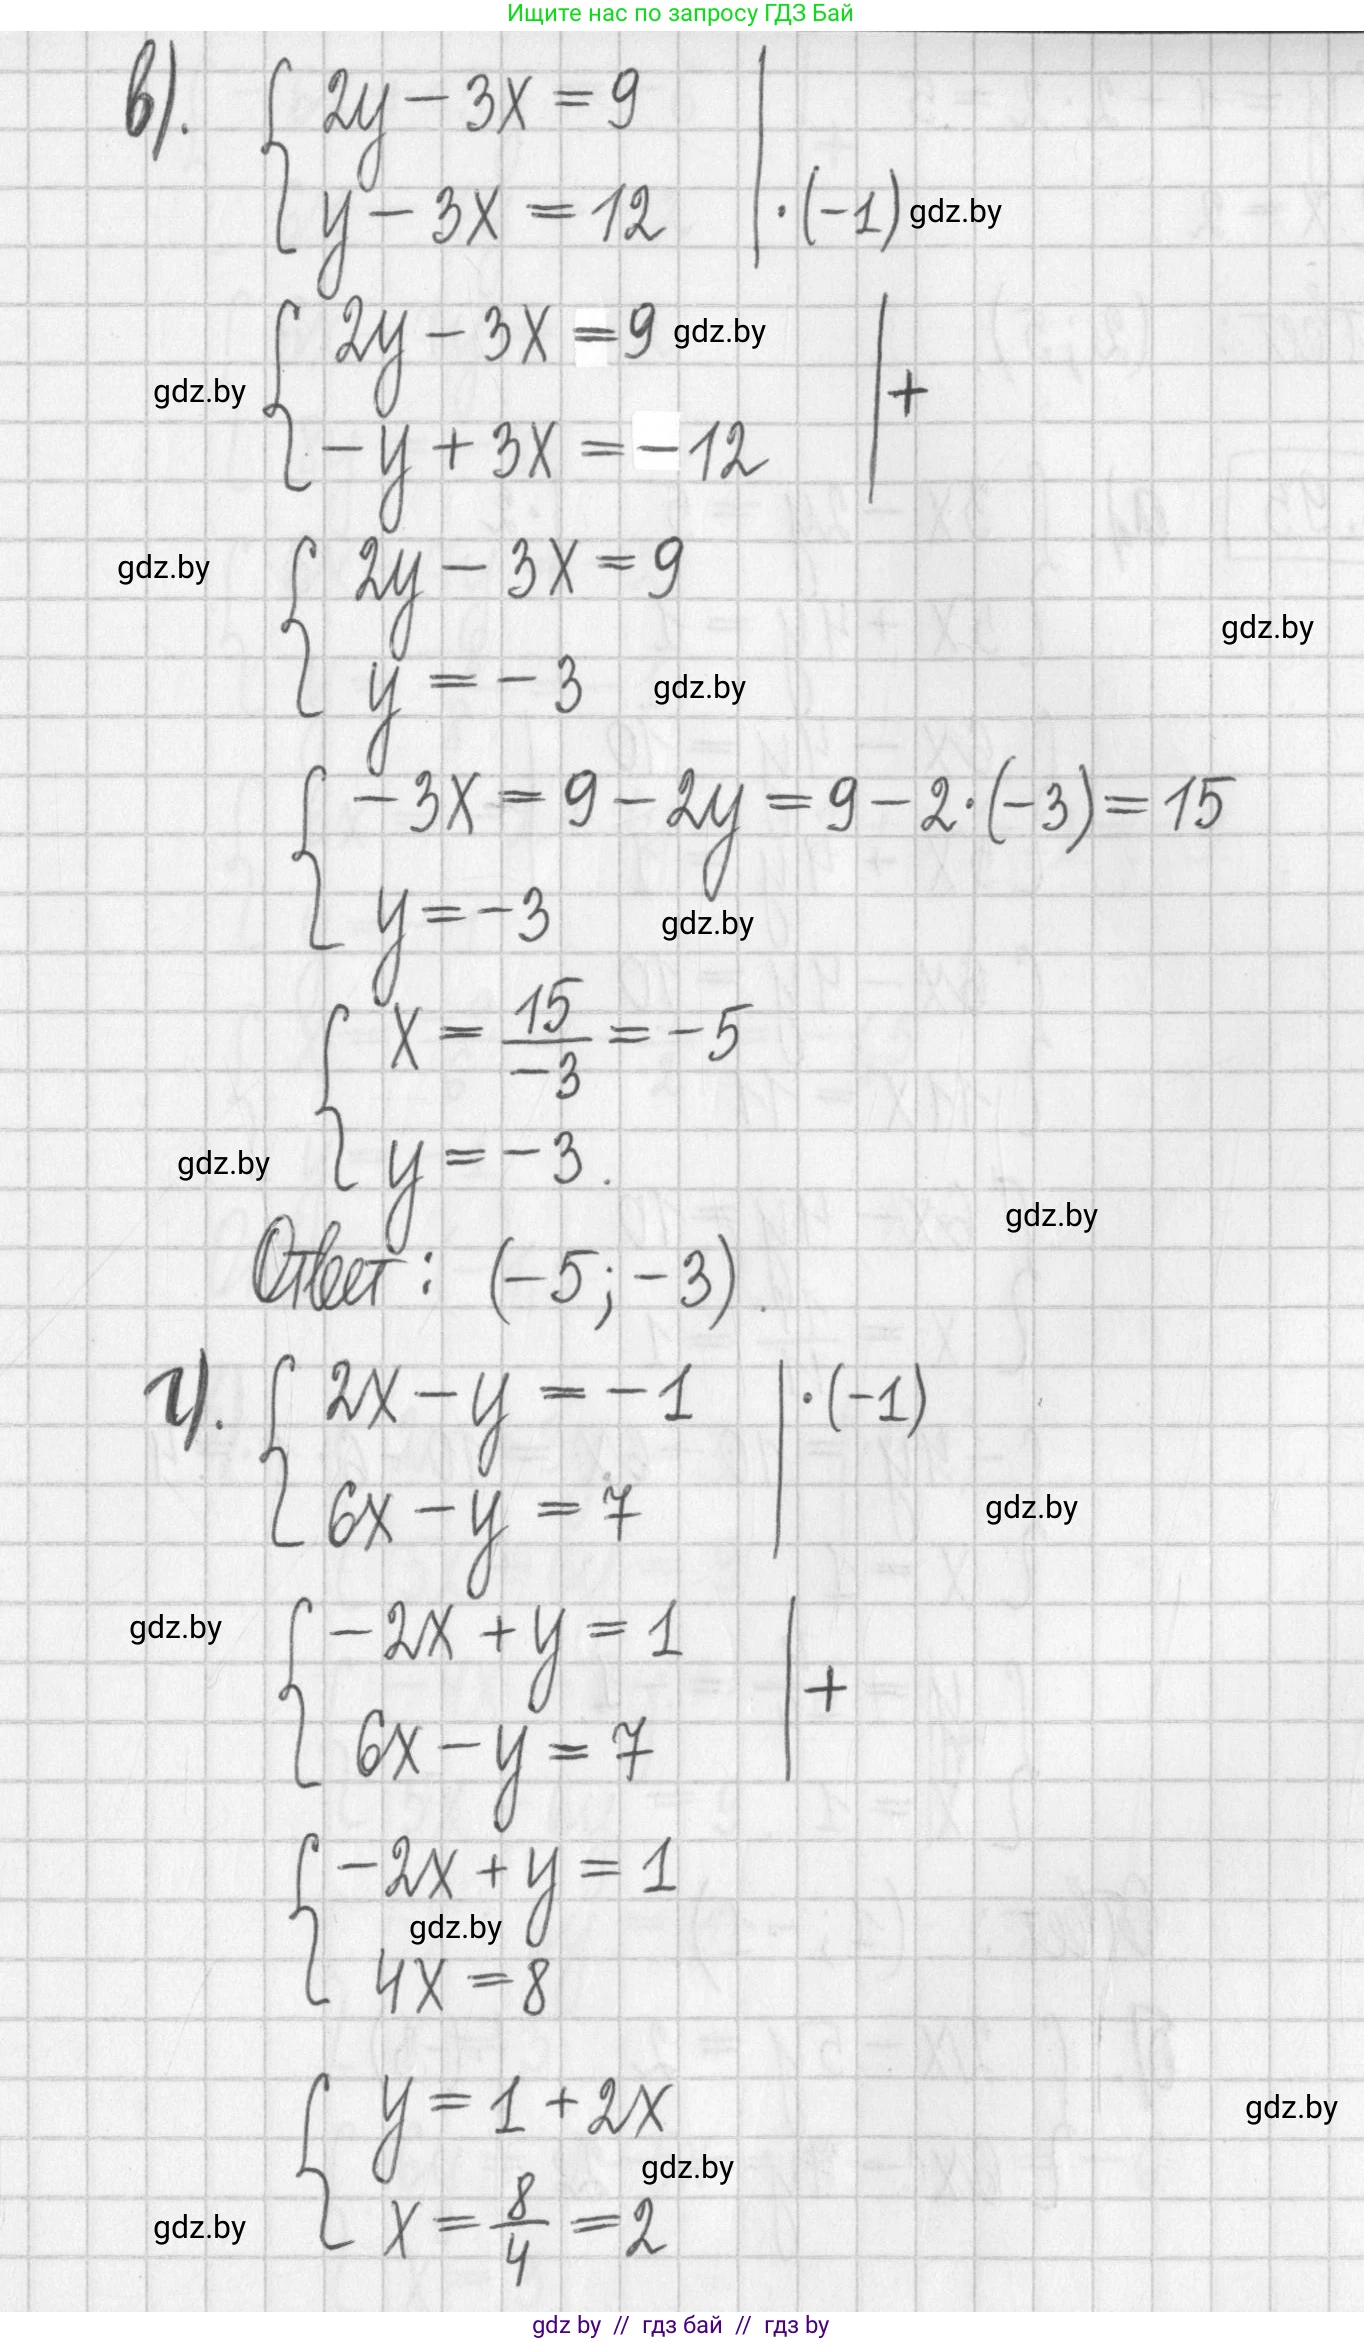 Ищите нас по запросу ГДЗ Бай
в). { 2y - 3x = 9
y - 3x = 12 | · (-1) gdz.by
{ 2y - 3x = 9 gdz.by
gdz.by
- y + 3x = - 12 | +
gdz.by { 2y - 3x = 9
gdz.by
y = - 3 gdz.by
{ - 3x = 9 - 2y = 9 - 2 · (-3) = 15
y = - 3 gdz.by
{ x = 15/-3 = - 5
gdz.by y = - 3.
gdz.by
Ответ: (-5; -3).
г). { 2x - y = - 1 | · (-1)
6x - y = 7 gdz.by
gdz.by { - 2x + y = 1 | +
6x - y = 7
{ - 2x + y = 1
gdz.by
4x = 8
{ y = 1 + 2x gdz.by
gdz.by
gdz.by x = 8/4 = 2
gdz by // гдз бай // гдз by